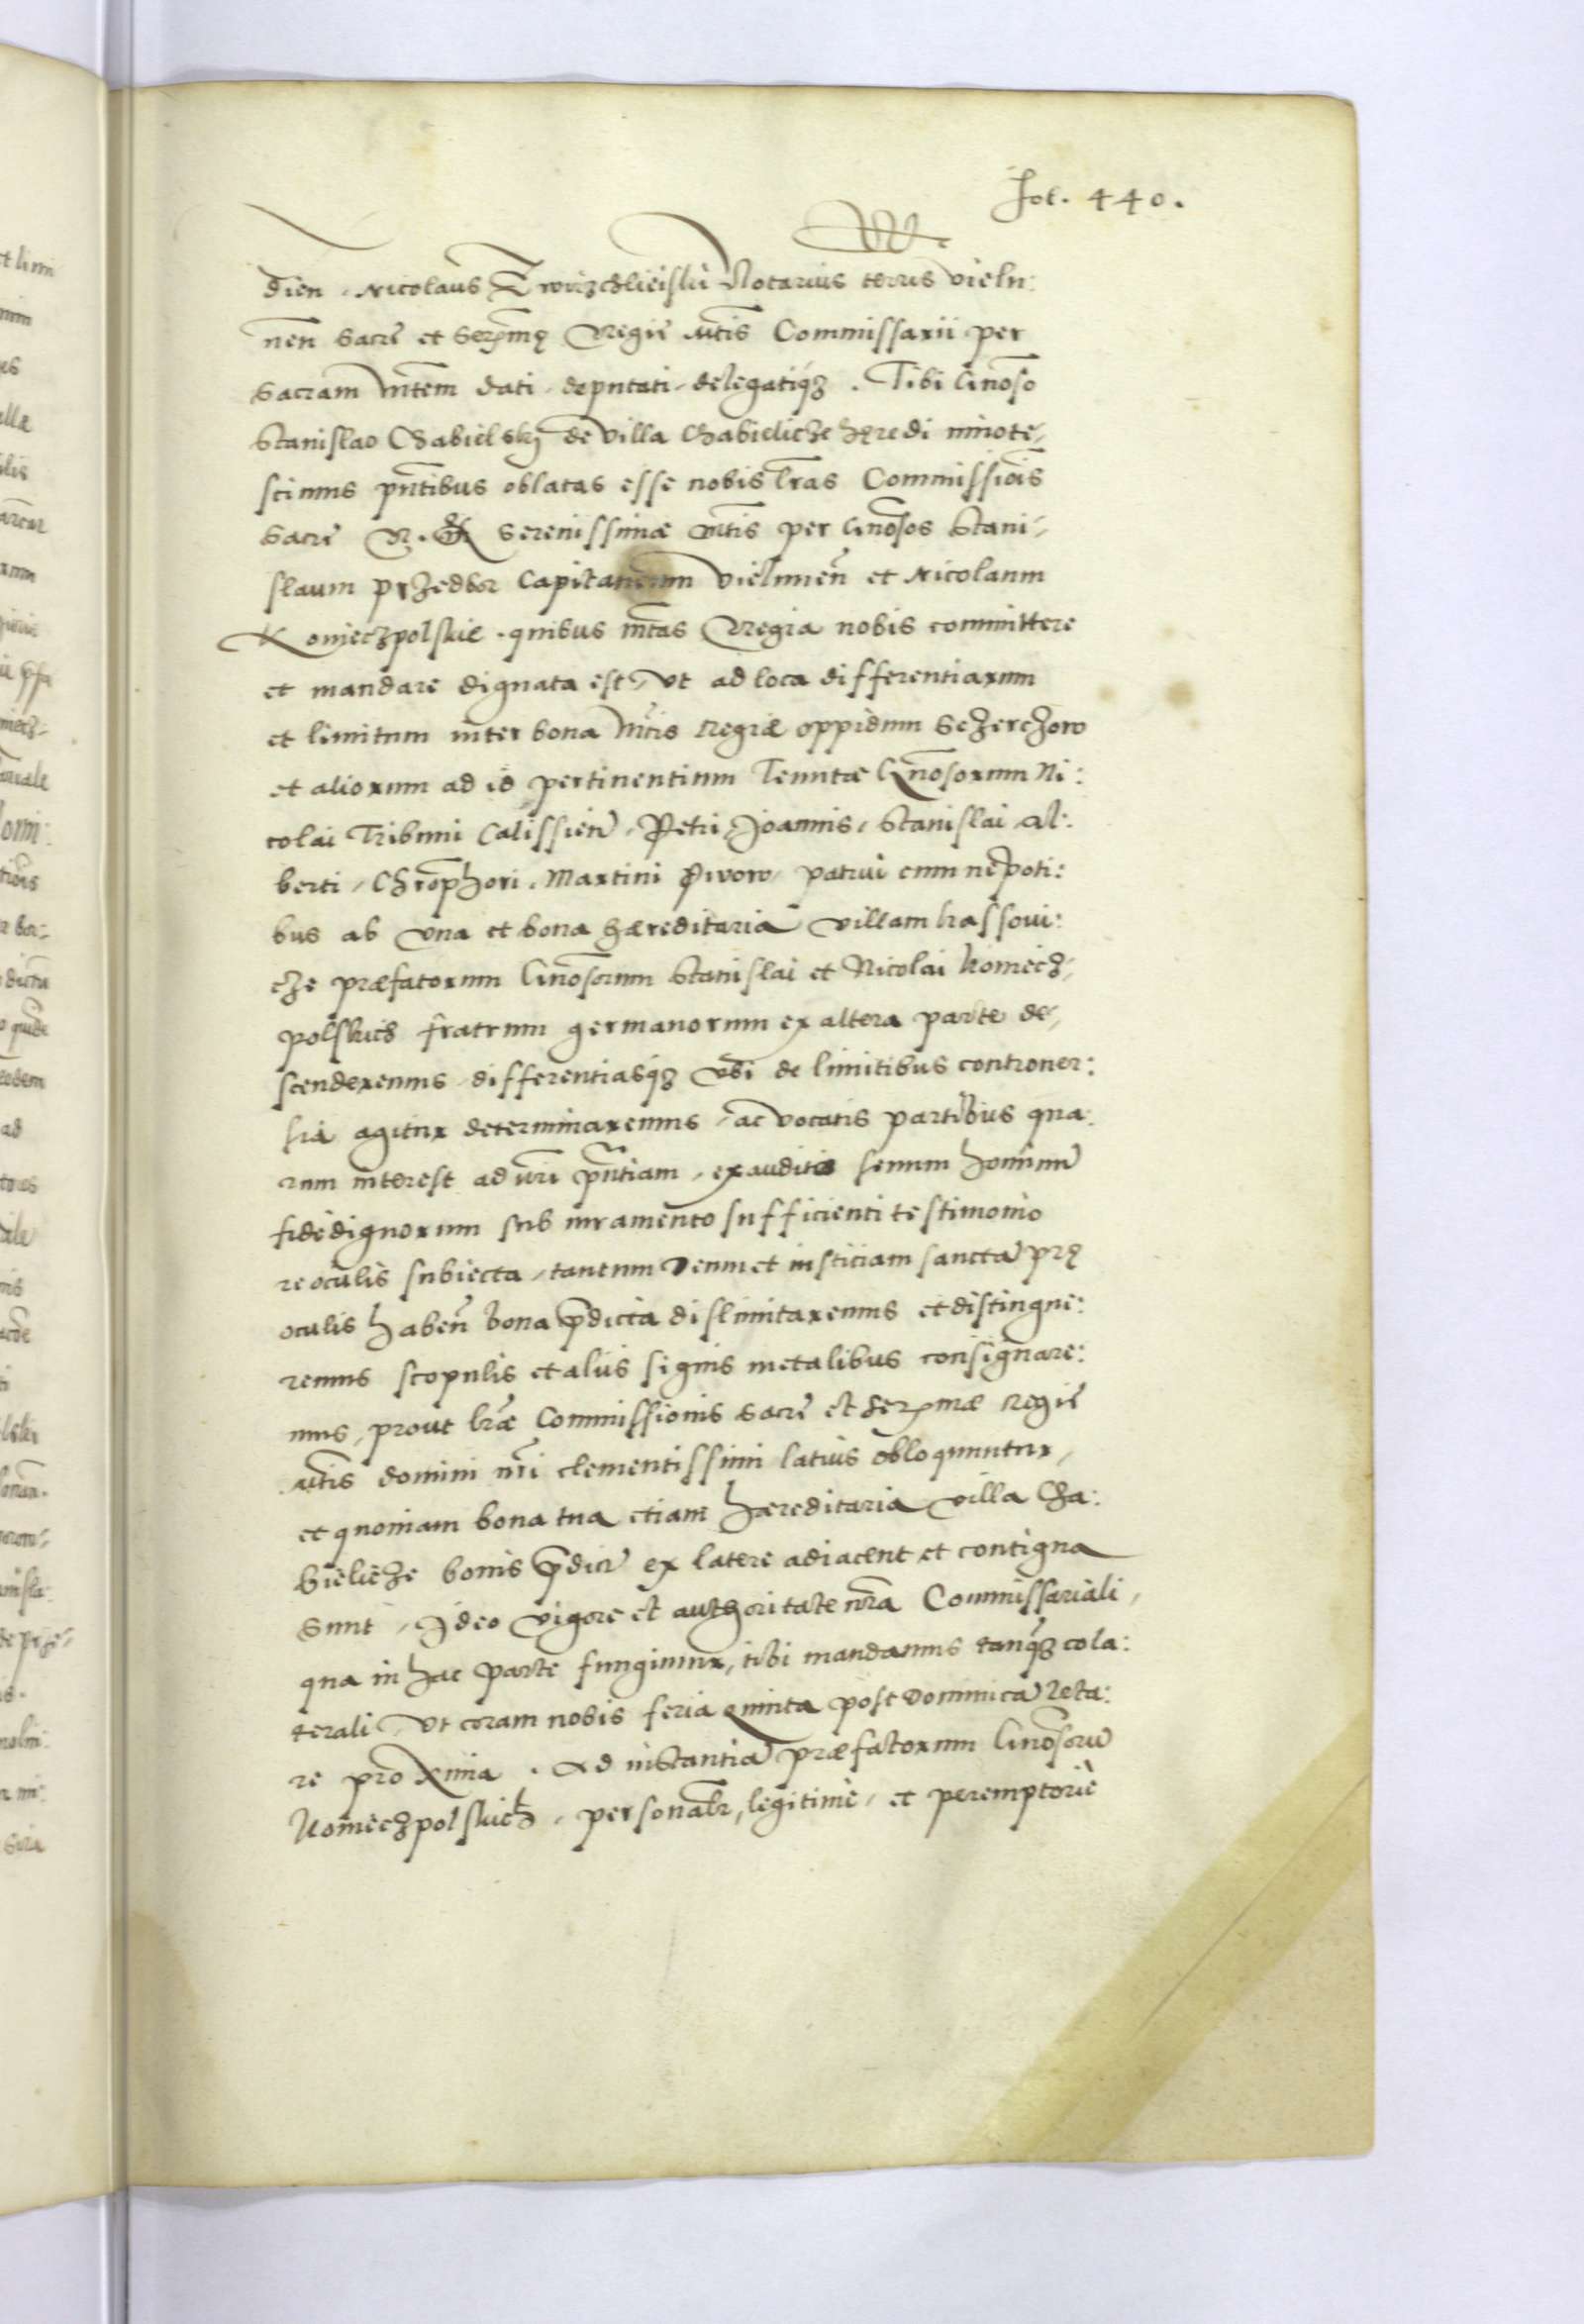 fol. 440.
dien. Nicolaus Zwirzchlieiski Notarius terrus vielu:
nen̄ Sacrȩ et Serͫmȩ Regiȩ Mtis Commissarii per
Sacram Mtem dati. deputati. delegatiqȝ. Tibi Gnoso
Stanislao Chabielsky de villa Chabieliche hȩredi innote,
scimus pñtibus oblatas esse nobis lras Commissiois
Sacrȩ R. serenissimæ Mtis per Gnosos Stani,
slaum Przedbor Capitaneum vielunen̄ et Nicolaum
Koniechpolskie. quibus mtas Regia nobis committere
et mandare dignata est, vt ad loca differentiarum
et limitum inter bona Mtis Regiæ oppidum Sczerczow
et aliorum ad id pertinentium Tenutæ Gnosorum Ni:
colai Tribuni Calissien̄, Petri, Joannis, Stanislai Al:
berti, Chrophori. Martini Pivow, patrui cum nepoti:
bus ab vna et bona hæreditaria villam kassoui:
cze præfatorum Gnosorum Stanislai et Nicolai koniecz,
polskich fratrum germanorum ex altera parte de,
scenderemus differentiasqȝ vbi de limitibus controuer:
sia agitur determinaremus, ac vocatis partibus qua:
rum interest ad vrī pñtiam, exauditis senum hominū
fidedignorum sub iuramento sufficienti testimonio
re oculis subiecta, tantum deum et iusticiam sanctā prȩ
oculis haben̄ bona pdicta dislimitaremus et distingue:
remus scopulis et aliis signis metalibus consignare:
mus, prout lræ Commissionis Sacrȩ et Serͫmæ Regiȩ
Mtis domini nri clementissimi latius obloquuntur,
et quoniam bona tua etiam hæreditaria villa Cha:
bielicze bonis pdict̄ ex latere adiacent et contigua
sunt, Ideo vigore et authoritate nra Commissariali,
qua in hac parte fungimur, tibi mandamus tanqȝ cola:
terali, vt coram nobis feria quinta post Dominicā Leta:
re proxima. Ad instantiā præfatorum Gnosorū
koniechpolskich, personalr, legitimè, et peremptoriè